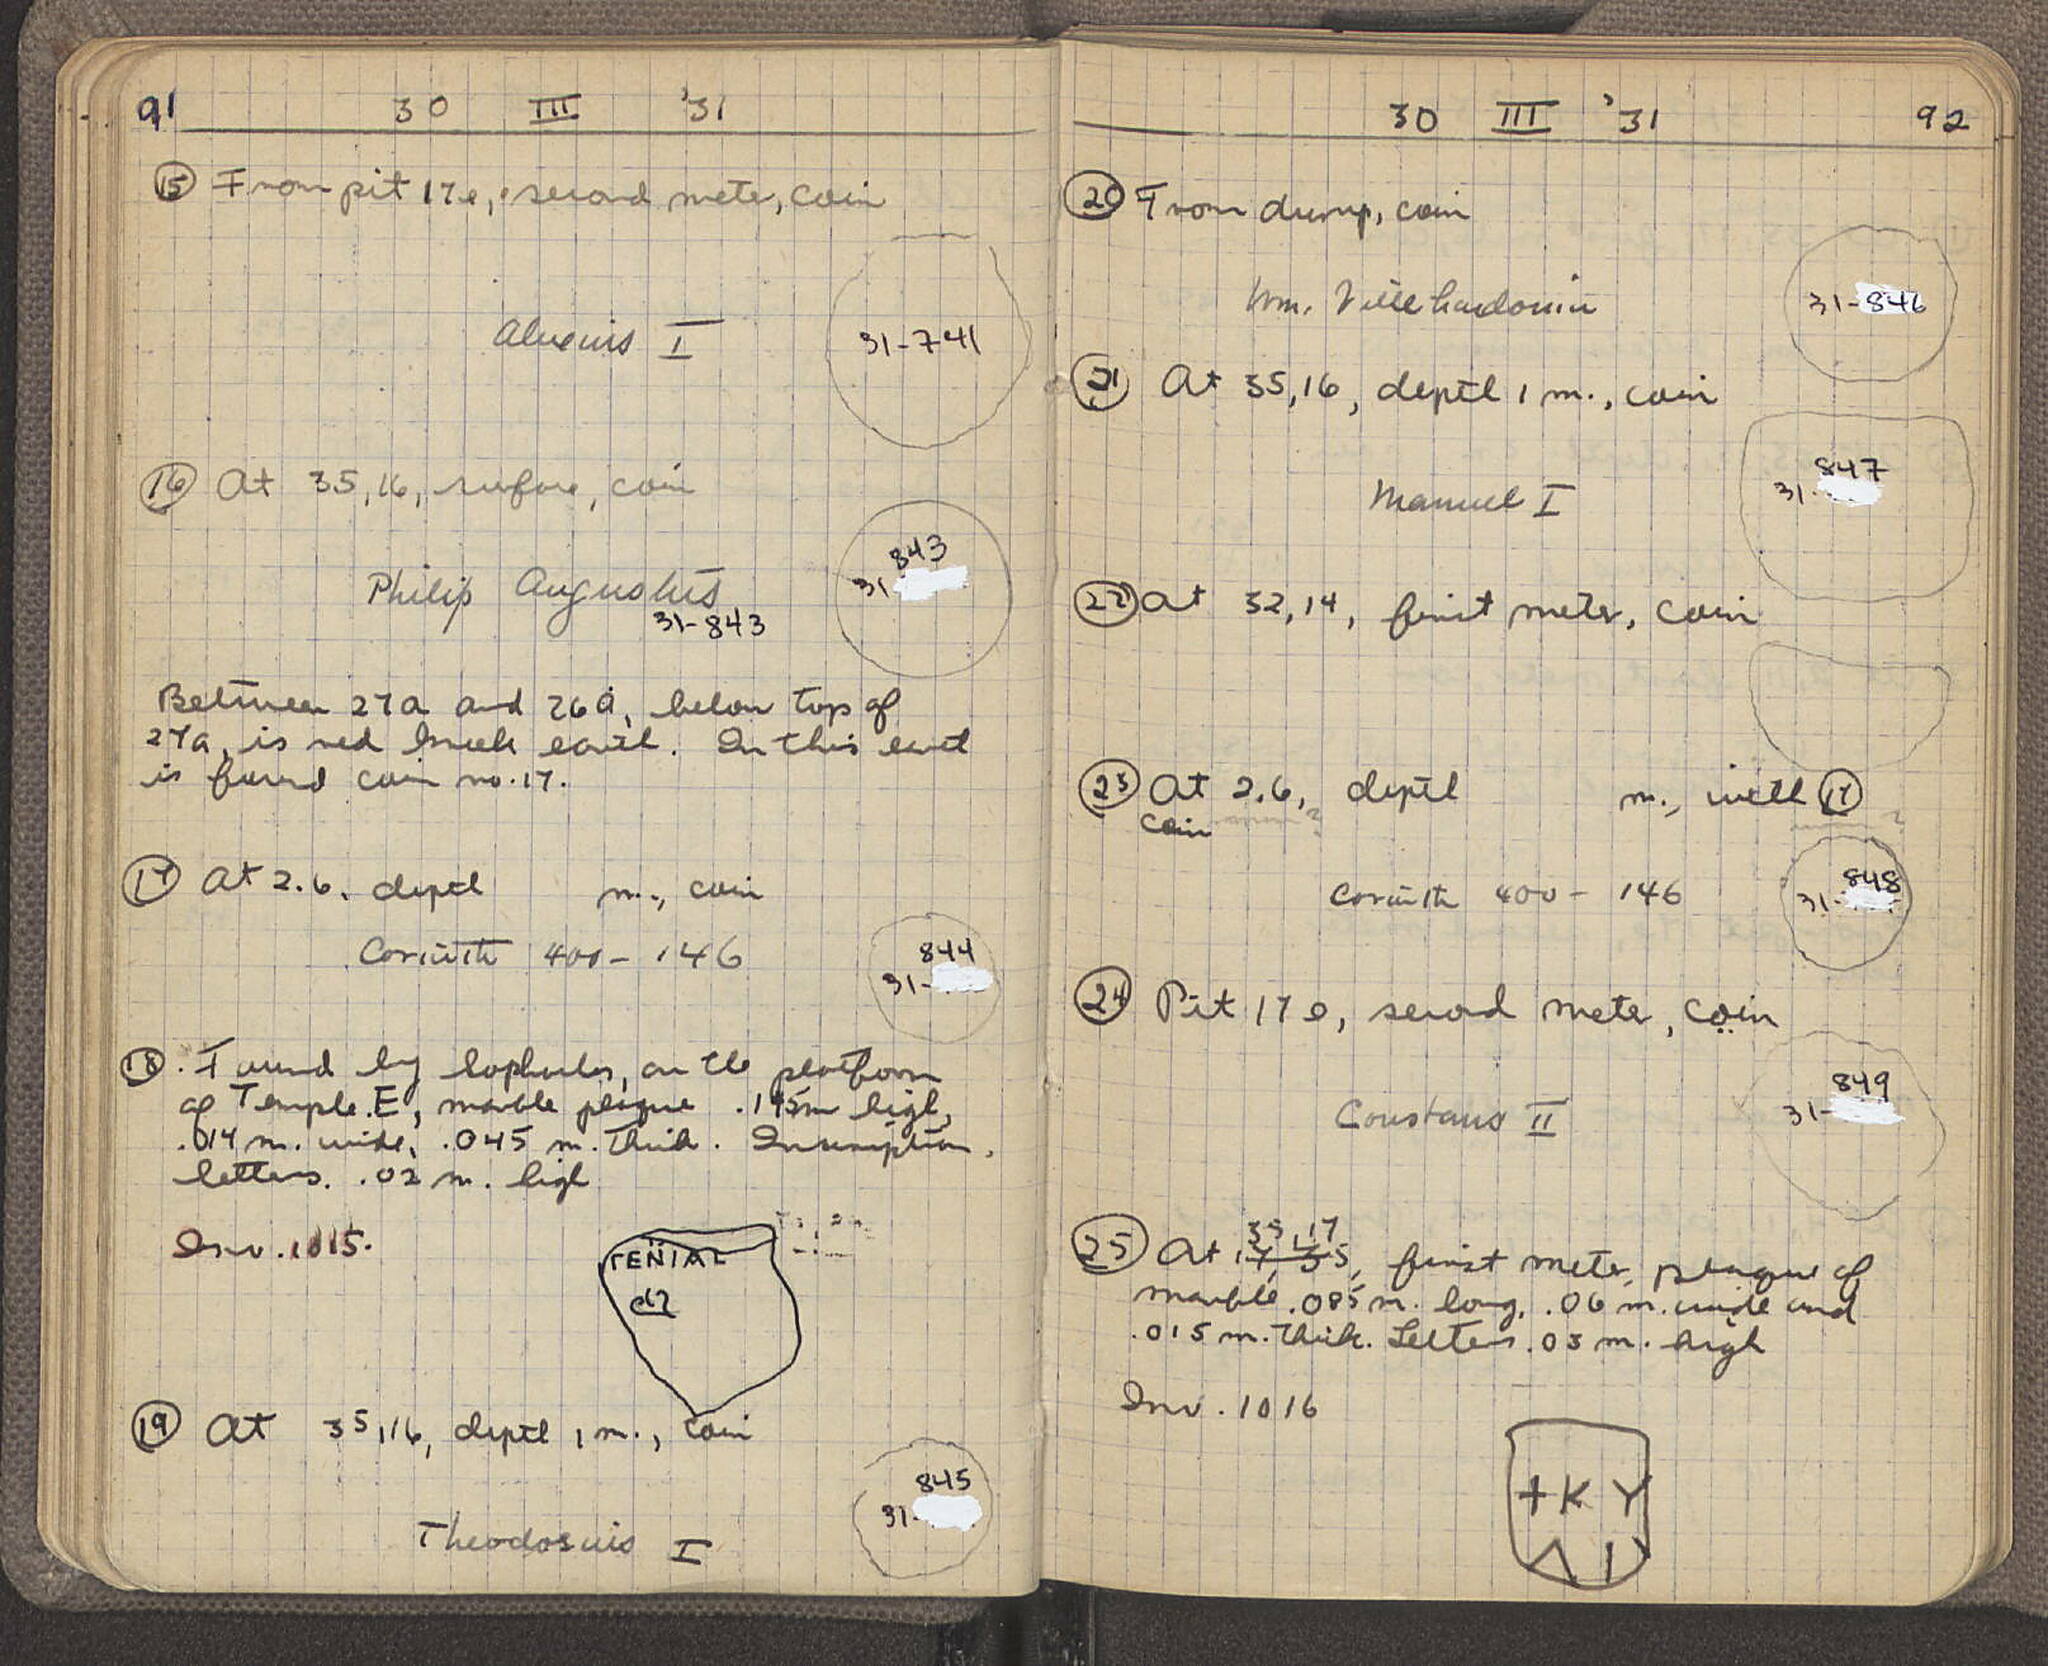 91 30 III '31
15 From pit 17e, second meter, coin
Alexius I
31-741
16 At 35,16, surface, coin
843
31
Philip Augustus
31-843
Between 27a and 26a, below top of
27a, is red brick earth. In this earth
is found coin no. 17.
17 At 2.6, depth m., coin
Corinth 400-146
844
31-
18. Found by on the platform
of Temple E, marble plaque .195m high,
.014 m. wide, .045 m. thick. Inscription,
letters. .02 m. high
Inv. 1015.
19 At 35,16, depth 1 m., coin
845
31-
Theodosius I
30 III '31 92
20 From dump, coin
Wm. Villehardouin
31-846
21 At 35,16, depth 1 m., coin
847
31-
Manuel I
22 At 32,14, first meter, coin
23 At 2.6, depth m., with 17
coin
Corinth 400-146
848
31-
24 Pit 17e, second meter, coin
849
31-
Constans II
35,17
25 At 17,35, first meter, plaque of
marble, .085 m. long, .06 m. wide and
.015 m. thick. Letters .03 m. high
Inv. 1016
+KY